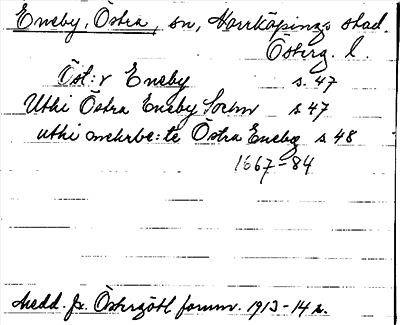 Eneby, Östra, sn, Norrköpings stad.
Österg. l.
Öst:r Eneby s. 47
Uthi Östra Eneby Sochn s 47
uthi omehrbe:te Östra Eneby s 48
1667-84
Medd. fr. Östergötl fornm. 1913-14